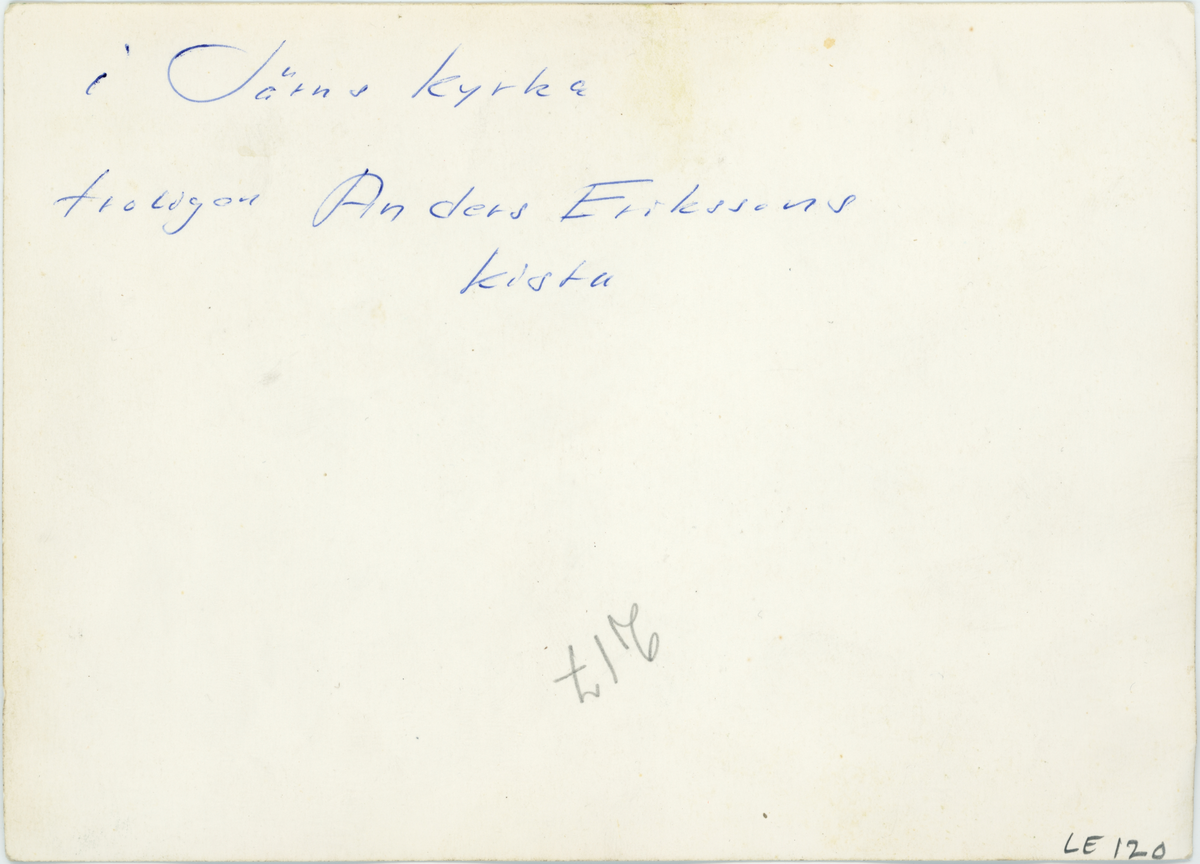 i Järns kyrka
troligen Anders Erikssons
kista
217
LE 120